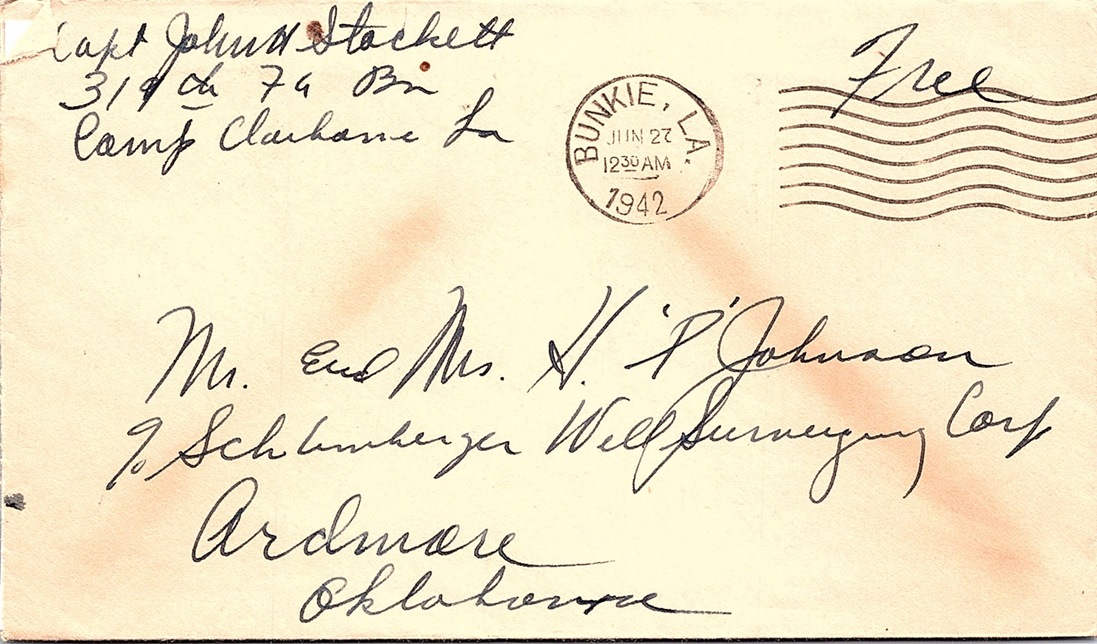 Capt John H Stockett
319th Fa Bn
Camp Claiborne La
Free
BUNKIE, LA.
JUN 27
12 30 AM
1942
Mr. and Mrs. H. "P" Johnson
% Schlumberger Well Surveying Corp
Ardmore
Oklahoma